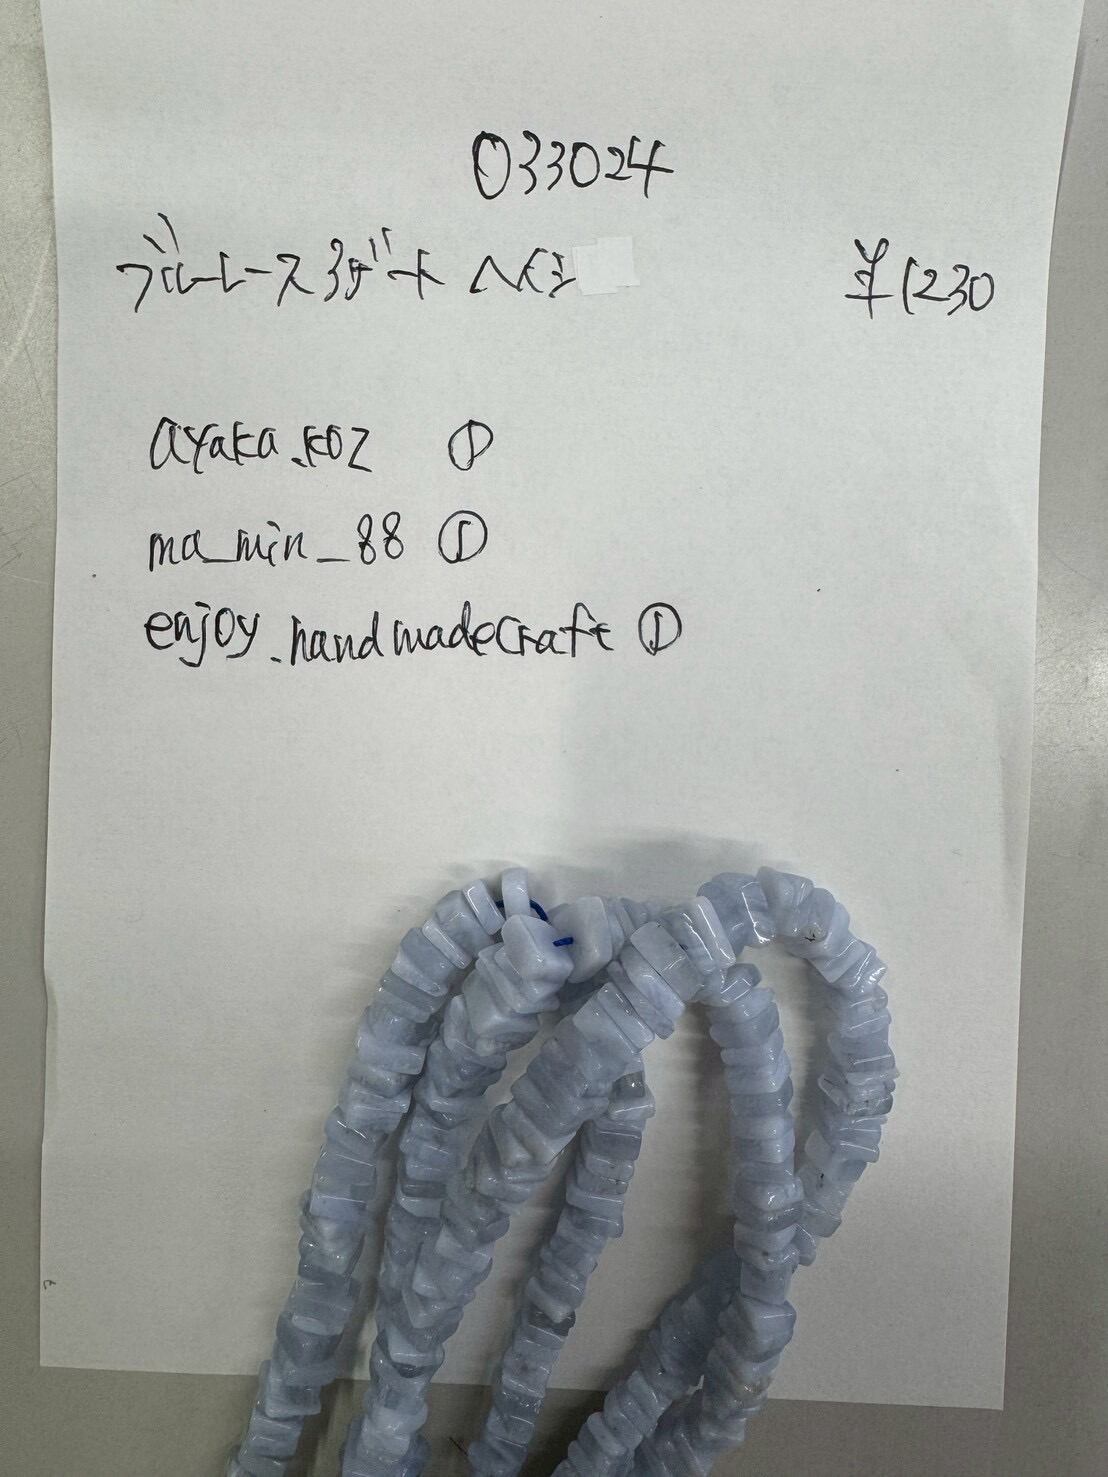 033024
ブルーレースアゲート ヘイシ ¥1230
ayaka.koz ①
ma_min_88 ①
enjoy.handmadecraft ①